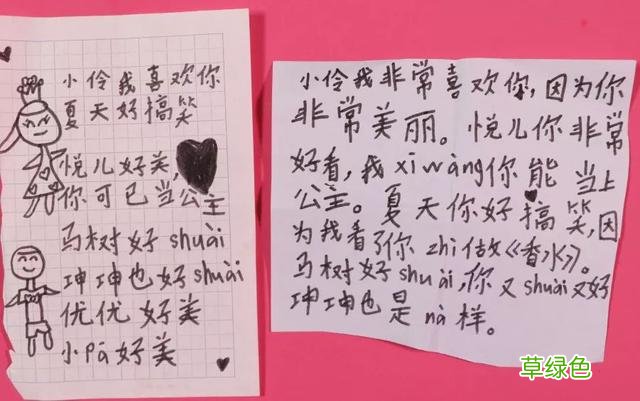 小伶我喜欢你
夏天好搞笑
悦儿好美,
你可已当公主
马树好shuài
坤坤也好shuài
优优好美
小Pā好美
小伶我非常喜欢你,因为你
非常美丽。悦儿你非常
好看,我xīwàng你能当上
公主。夏天你好搞笑,因
为我看了你zhì做《香水》。
马树好shuài,你又shuài又好
坤坤也是nà样。
草绿色